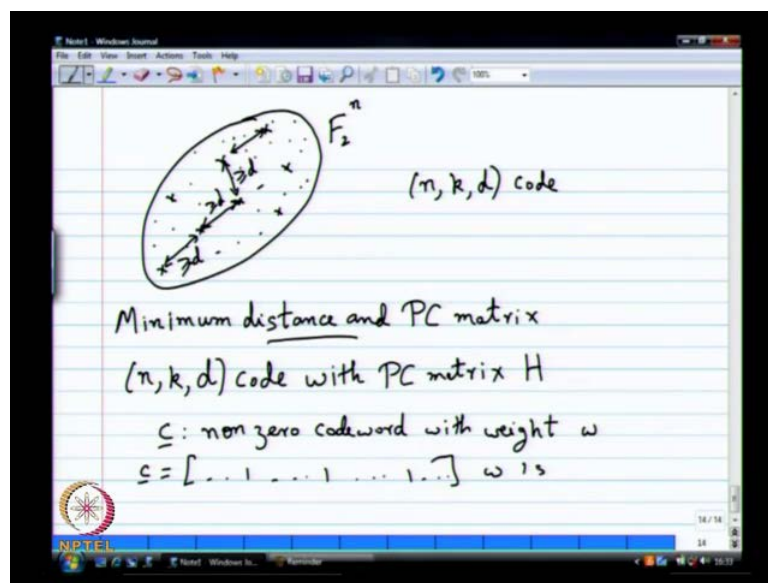 Note1 - Windows Journal
File Edit View Insert Actions Tools Help
100%
F₂ⁿ
≥d
≥d
≥d
(n, k, d) code
Minimum distance and PC matrix
(n, k, d) code with PC matrix H
c: non zero codeword with weight w
c = [ . . 1 . . . 1 . . . 1 . . ] w 1s
14 / 14
14
NPTEL
Note1 - Windows Jo...
Reminder
16:33